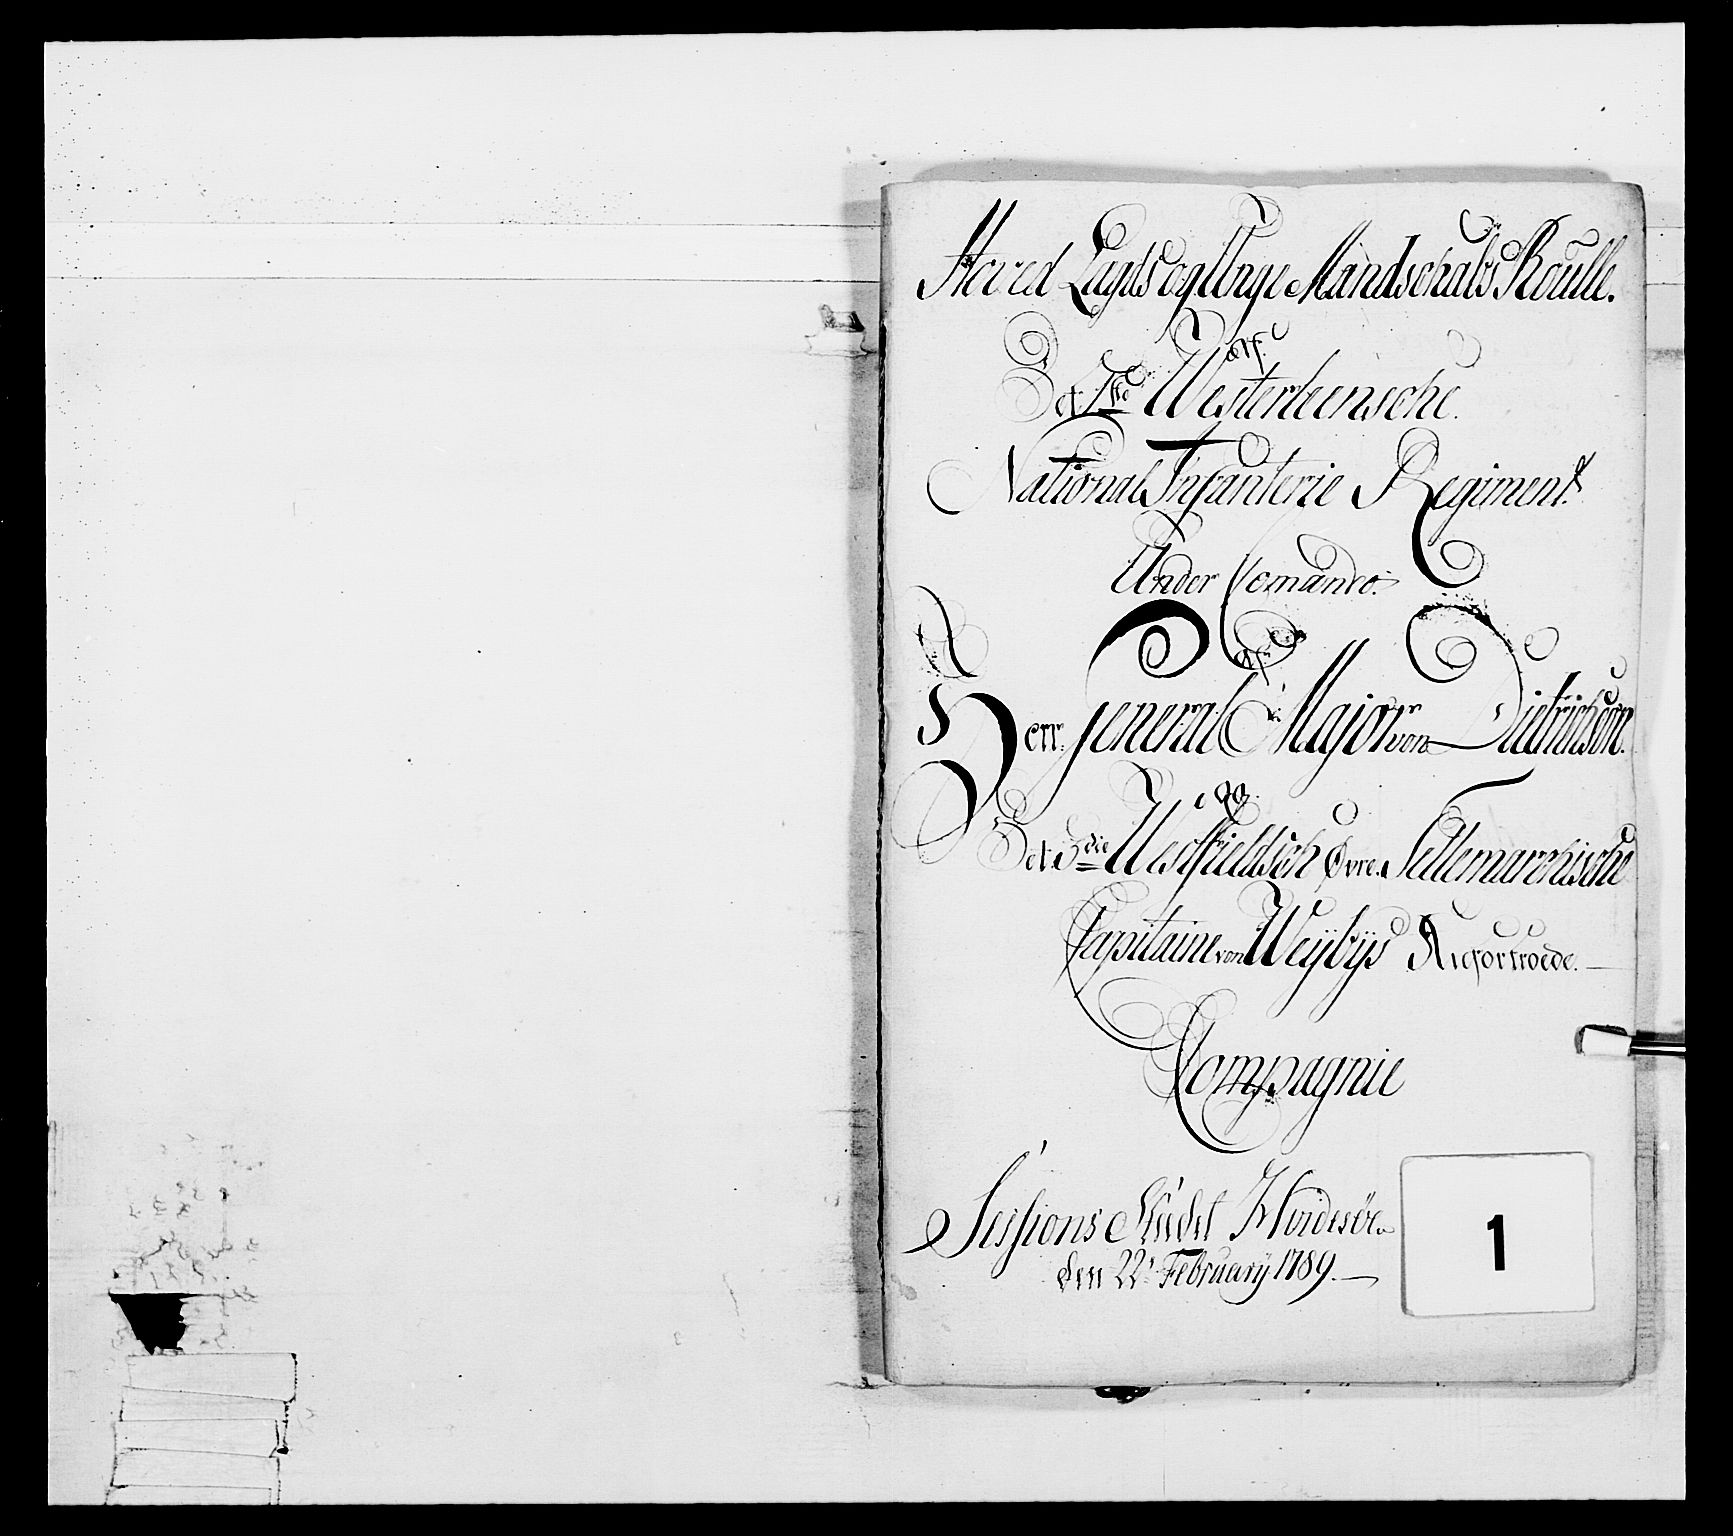 Hoved Lægds og Unge Mandskabs Roulle.
af
Det 2de Westerleenske
National Infanterie Regiment
Under Comando
af
Herr General Major von Dietrichson
Det 3die Westfieldsch Øvre Tellemarchische
Capitaine von Weybÿs
Compagnie
Sessions Stædet Hvidesöe
den 22' Februarÿ 1789.
1